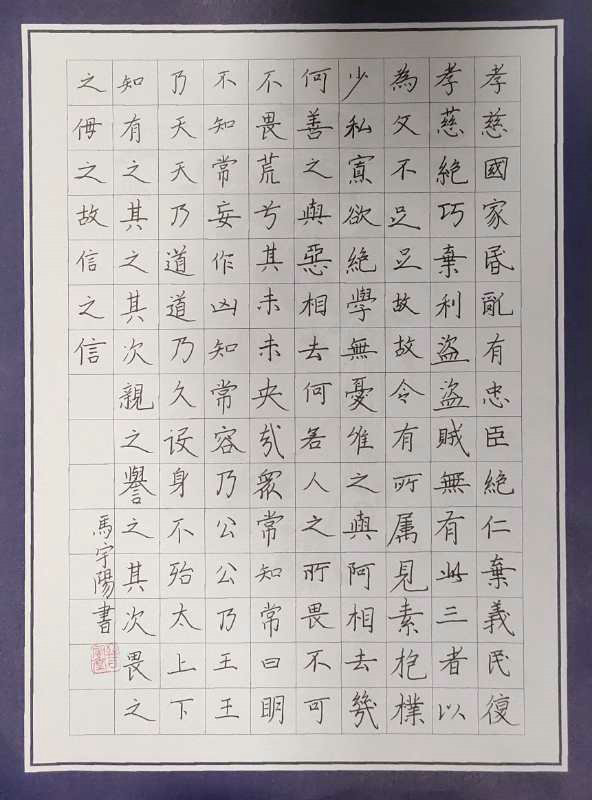 孝慈國家昏亂有忠臣絕仁棄義民復
孝慈絕巧棄利盜盜賊無有此三者以
為文不足足故故令有所属見素抱樸
少私寡欲絕學無憂維之與阿相去幾
何善之與惡相去何若人之所畏不可
不畏荒兮其未未央哉眾常知常曰明
不知常妄作凶知常容乃公公乃王王
乃天天乃道道乃久沒身不殆太上下
知有之其之其次親之譽之其次畏之
之侮之故信之信
馬宇陽書